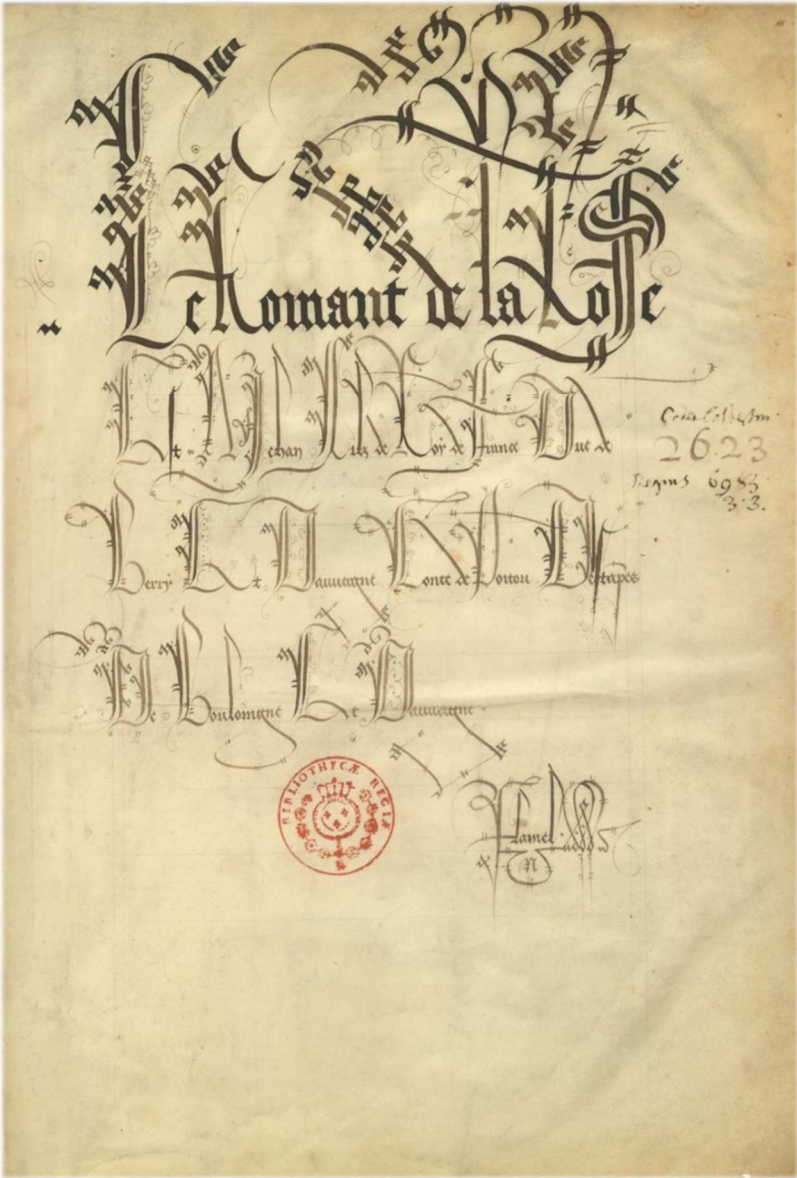 Le Romant de la Rose
Est A Jehan Filz de Roy de France Duc de
Berry Et Dauuergne Conte de Poitou Destāpes
De Bouloingne Et Dauuergne
2623
Regius 6983
3.3.
BIBLIOTHECÆ REGIÆ
Flamel
N